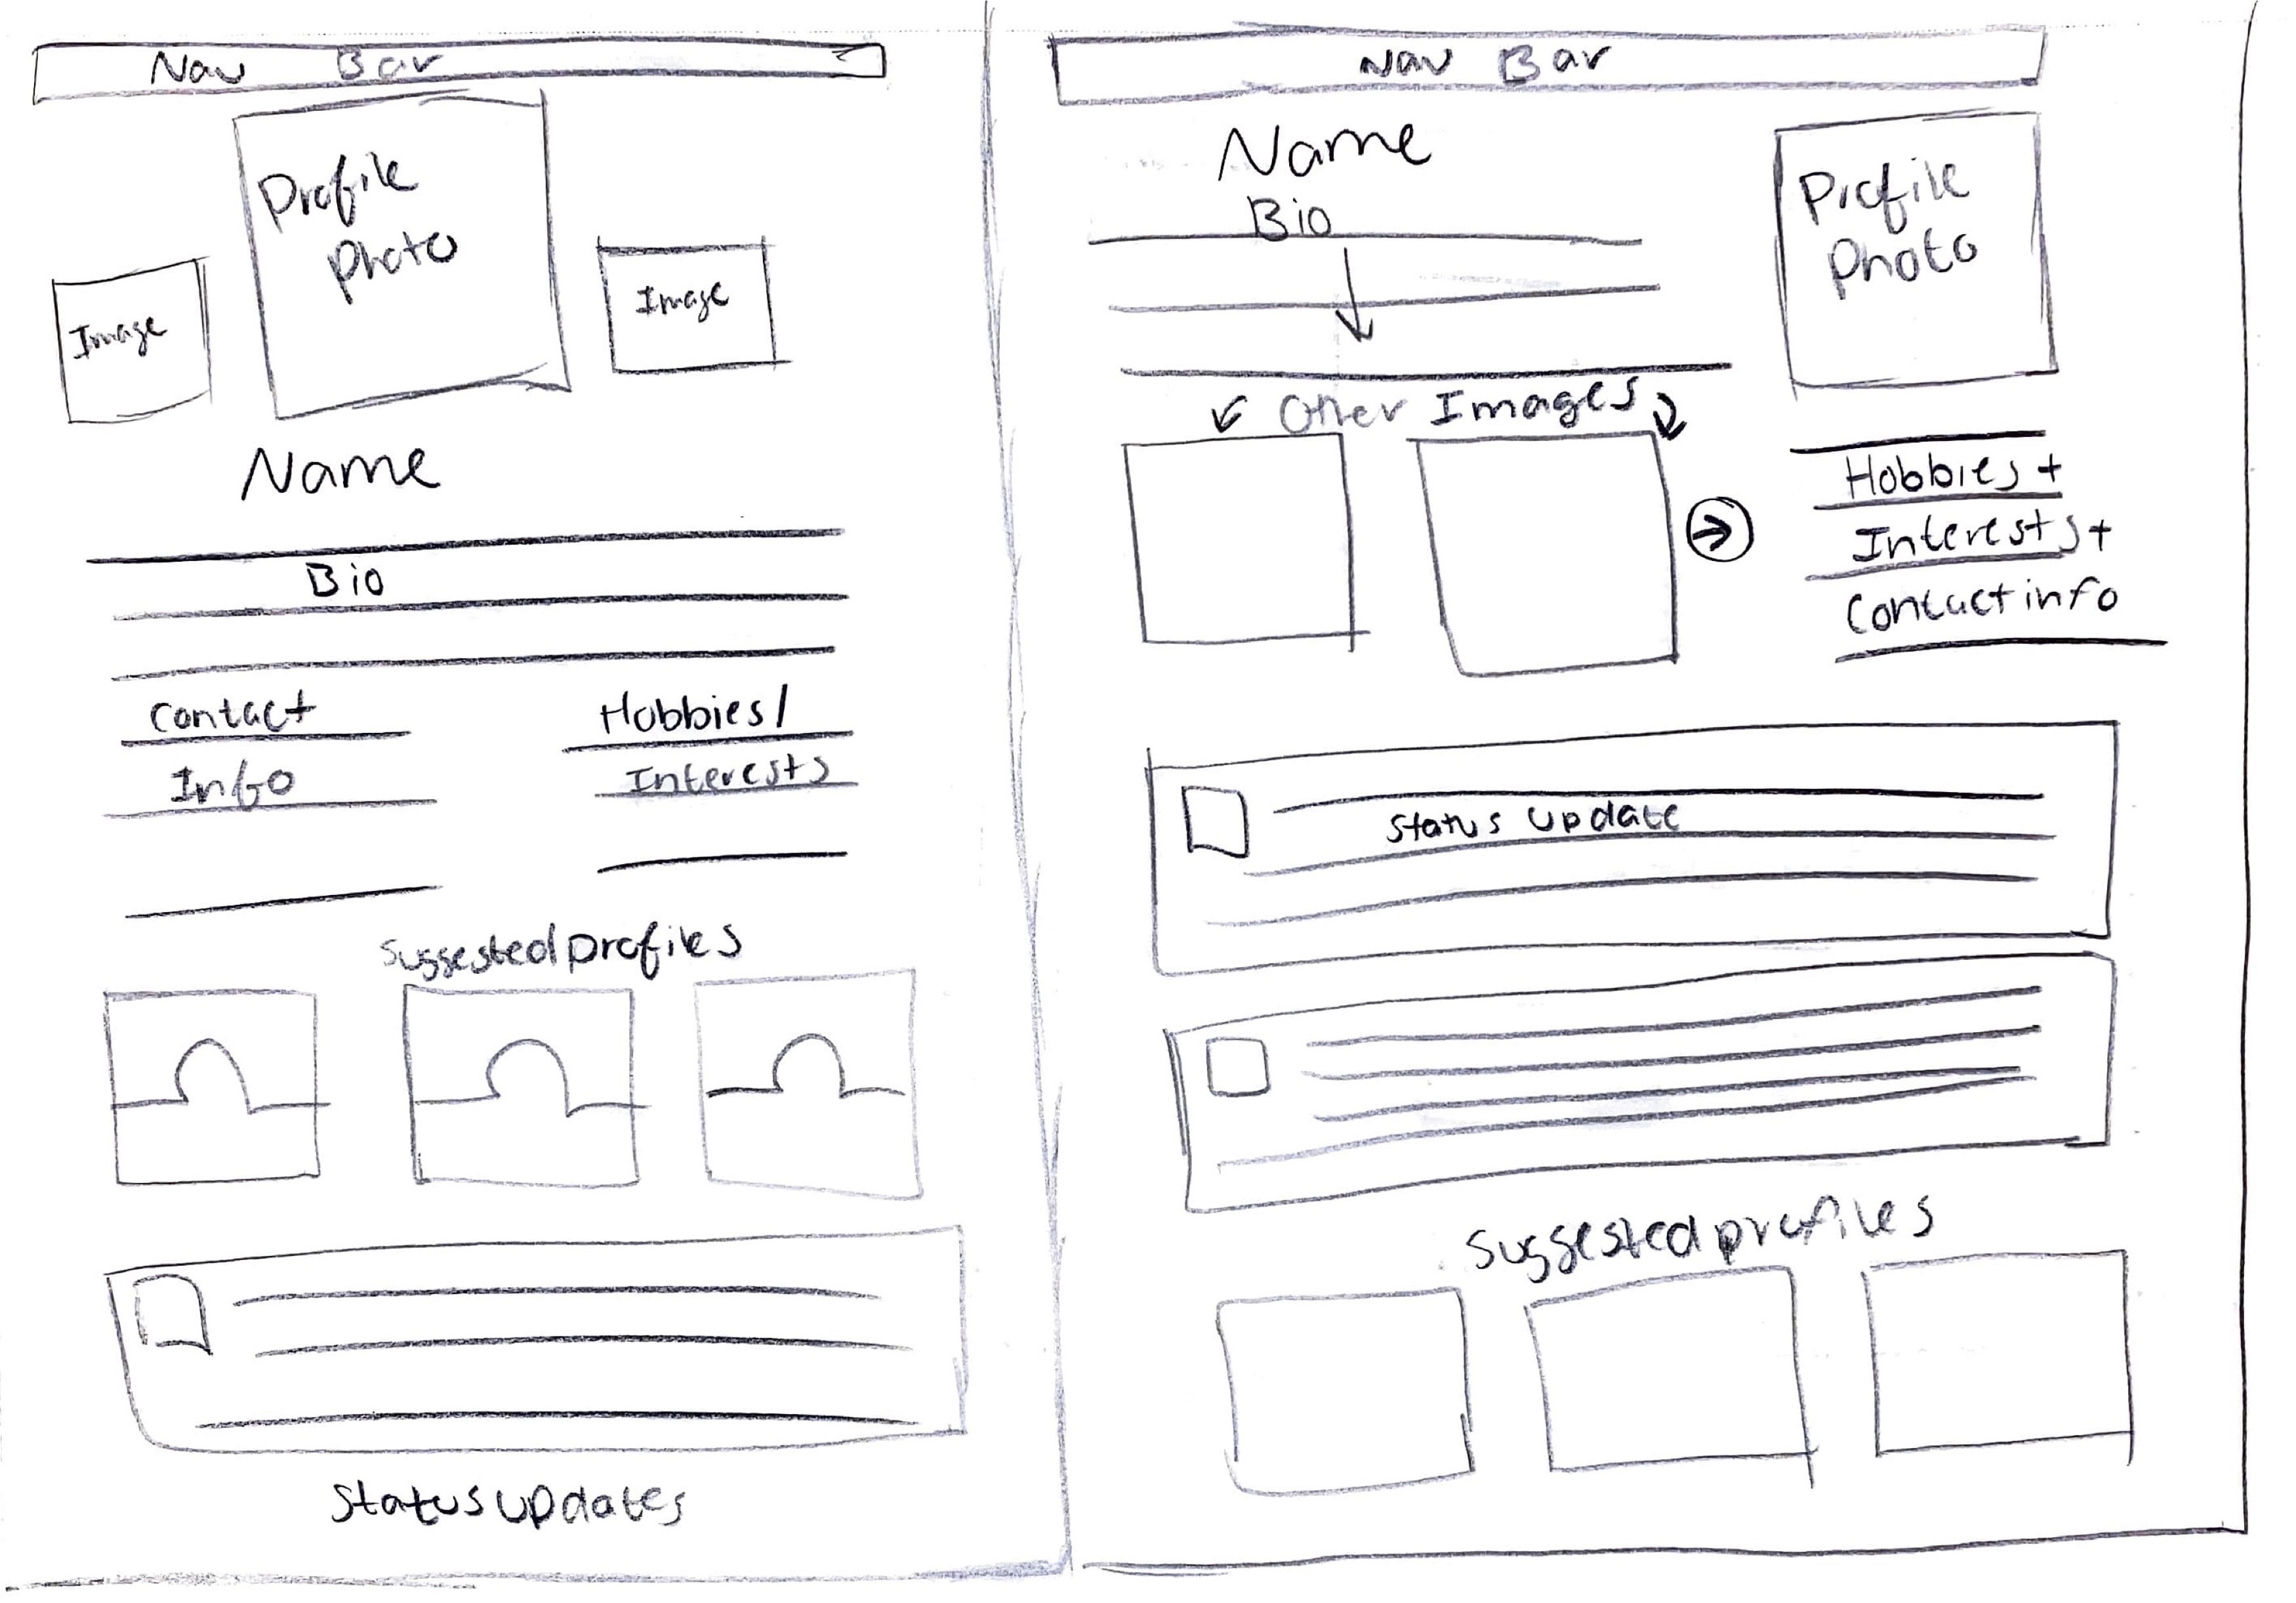 Nav Bar
Profile
Photo
Image
Image
Name
Bio
Contact
Info
Hobbies/
Interests
Suggested profiles
Status updates
Nav Bar
Name
Bio
Profile
Photo
Other Images
Hobbies +
Interests +
Contact info
Status update
Suggested profiles